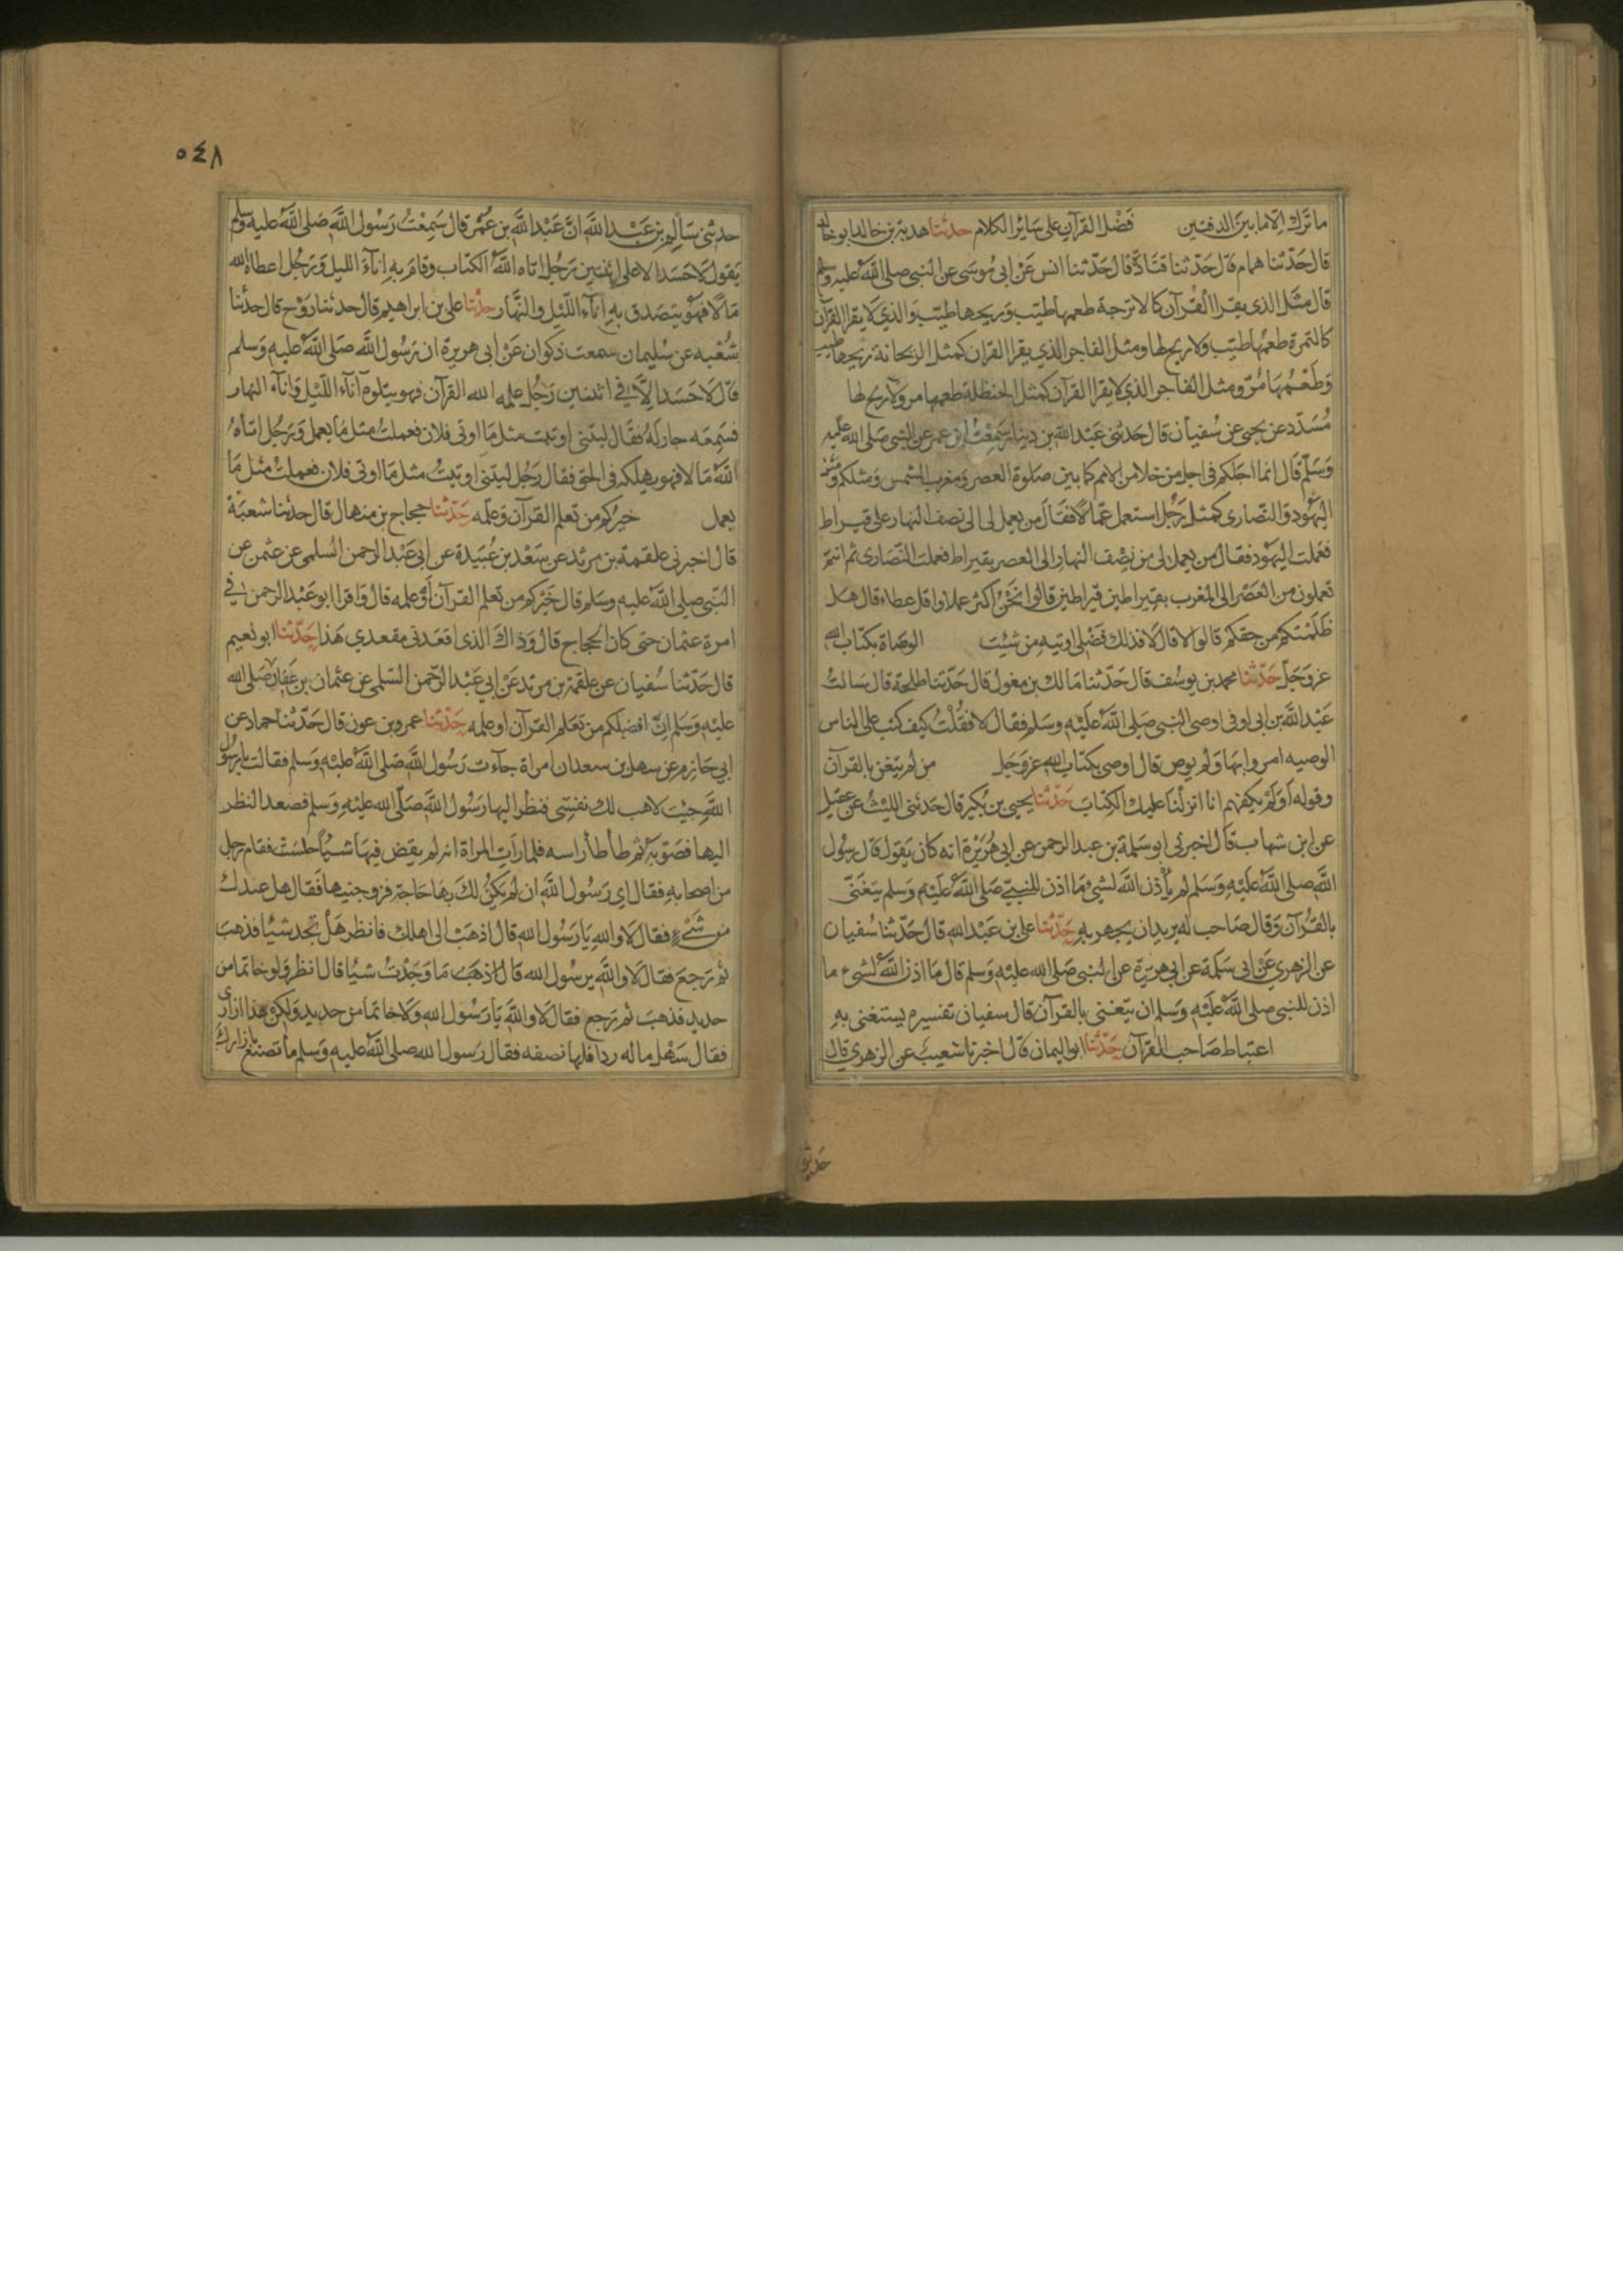 ما ترك الا ما بين الدفتين فضل القرآن على سائر الكلام حدثنا هدبة بن خالد ابو خالد
قال حدثنا همام قال حدثنا قتادة قال حدثنا انس عن ابى موسى عن النبى صلى الله عليه وسلم
قال مثل الذى يقرا القرآن كالاترجة طعمها طيب وريحها طيب والذي لا يقرا القرآن
كالتمرة طعمها طيب ولا ريح لها ومثل الفاجر الذي يقرا القران كمثل الريحانة ريحها طيب
وطعمها مر ومثل الفاجر الذي لا يقرا القرآن كمثل الحنظلة طعمها مر ولا ريح لها
مسدد عن يحيى عن سفيان قال حدثنى عبد الله بن دينار سمعت ابن عمر عن النبى صلى الله عليه
وسلم قال انما اجلكم فى اجل من خلا من الامم كما بين صلوة العصر ومغرب الشمس ومثلكم ومثل
اليهود والنصارى كمثل رجل استعمل عمالا فقال من يعمل لى الى نصف النهار على قيراط
فعملت اليهود فقال من يعمل لى من نصف النهار الى العصر بقيراط فعملت النصارى ثم انتم
تعملون من العصر الى المغرب بقيراطين قيراطين قالوا نحن اكثر عملا واقل عطاء قال هل
ظلمتكم من حقكم قالوا لا قال لا فذلك فضلى اوتيه من شئت الوصاة بكتاب الله
عز وجل حدثنا محمد بن يوسف قال حدثنا مالك بن مغول قال حدثنا طلحة قال سالت
عبد الله بن ابى اوفى اوصى النبى صلى الله عليه وسلم فقال لا فقلت كيف كتب على الناس
الوصيه امروا بها ولم يوص قال اوصى بكتاب الله عز وجل من لم يتغن بالقرآن
وقوله او لم يكفهم انا انزلنا عليك الكتاب حدثنا يحيى بن بكير قال حدثنى الليث عن عقيل
عن ابن شهاب قال اخبرنى ابو سلمة بن عبد الرحمن عن ابى هريرة انه كان يقول قال رسول
الله صلى الله عليه وسلم لم يأذن الله لشىء ما اذن للنبى صلى الله عليه وسلم يتغنى
بالقرآن وقال صاحب له يريد ان يجهر به حدثنا على بن عبد الله قال حدثنا سفيان
عن الزهري عن ابى سلمة عن ابي هريرة عن النبى صلى الله عليه وسلم قال ما اذن الله لشىء ما
اذن للنبى صلى الله عليه وسلم ان يتغنى بالقرآن قال سفيان تفسيره يستغنى به
اغتباط صاحب القرآن حدثنا ابو اليمان قال اخبرنا شعيب عن الزهري قال
حدثنى
٥٤٨
حدثنى سالم بن عبد الله ان عبد الله بن عمر قال سمعت رسول الله صلى الله عليه وسلم
يقول لا حسد الا على اثنتين رجل اتاه الله الكتاب وقام به اناء الليل ورجل اعطاه الله
مالا فهو يتصدق به اناء الليل والنهار حدثنا على بن ابراهيم قال حدثنا روح قال حدثنا
شعبه عن سليمان سمعت ذكوان عن ابى هريرة ان رسول الله صلى الله عليه وسلم
قال لا حسد الا فى اثنتين رجل علمه الله القرآن فهو يتلوه آناء الليل واناء النهار
فسمعه جار له فقال ليتنى اوتيت مثل ما اوتى فلان فعملت مثل ما يعمل ورجل اتاه
الله مالا فهو يهلكه فى الحق فقال رجل ليتنى اوتيت مثل ما اوتى فلان فعملت مثل ما
يعمل خيركم من تعلم القرآن وعلمه حدثنا حجاج بن منهال قال حدثنا شعبة
قال اخبرنى علقمة بن مرثد عن سعد بن عبيدة عن ابى عبد الرحمن السلمى عن عثمن عن
النبى صلى الله عليه وسلم قال خيركم من تعلم القرآن او علمه قال واقرا ابو عبد الرحمن فى
امرة عثمان حتى كان الحجاج قال وذاك الذى اقعدنى مقعدي هذا حدثنا ابو نعيم
قال حدثنا سفيان عن علقمة بن مرثد عن ابي عبد الرحمن السلمى عن عثمان بن عفان صلى الله
عليه وسلم ان افضلكم من تعلم القرآن او علمه حدثنا عمرو بن عون قال حدثنا حماد عن
ابي حازم عن سهل بن سعد ان امراة جآءت رسول الله صلى الله عليه وسلم فقالت يا رسول
الله جيت لاهب لك نفسى فنظر اليها رسول الله صلى الله عليه وسلم فصعد النظر
اليها فصوبه ثم طأطأ راسه فلما رات المراة انه لم يقض فيها شيا جلست فقام رجل
من اصحابه فقال اي رسول الله ان لم يكن لك بها حاجة فزوجنيها فقال هل عندك
من شىء فقال لا والله يا رسول الله قال اذهب الى اهلك فانظر هل تجد شيا فذهب
ثم رجع فقال لا والله يرسول الله قال اذهب ما وجدت شيا قال انظر ولو خاتما من
حديد فذهب ثم رجع فقال لا والله يا رسول الله ولا خاتما من حديد ولكن هذا ازارى
فقال سهل ما له ردا فلها نصفه فقال رسول الله صلى الله عليه وسلم ما تصنع بازارك